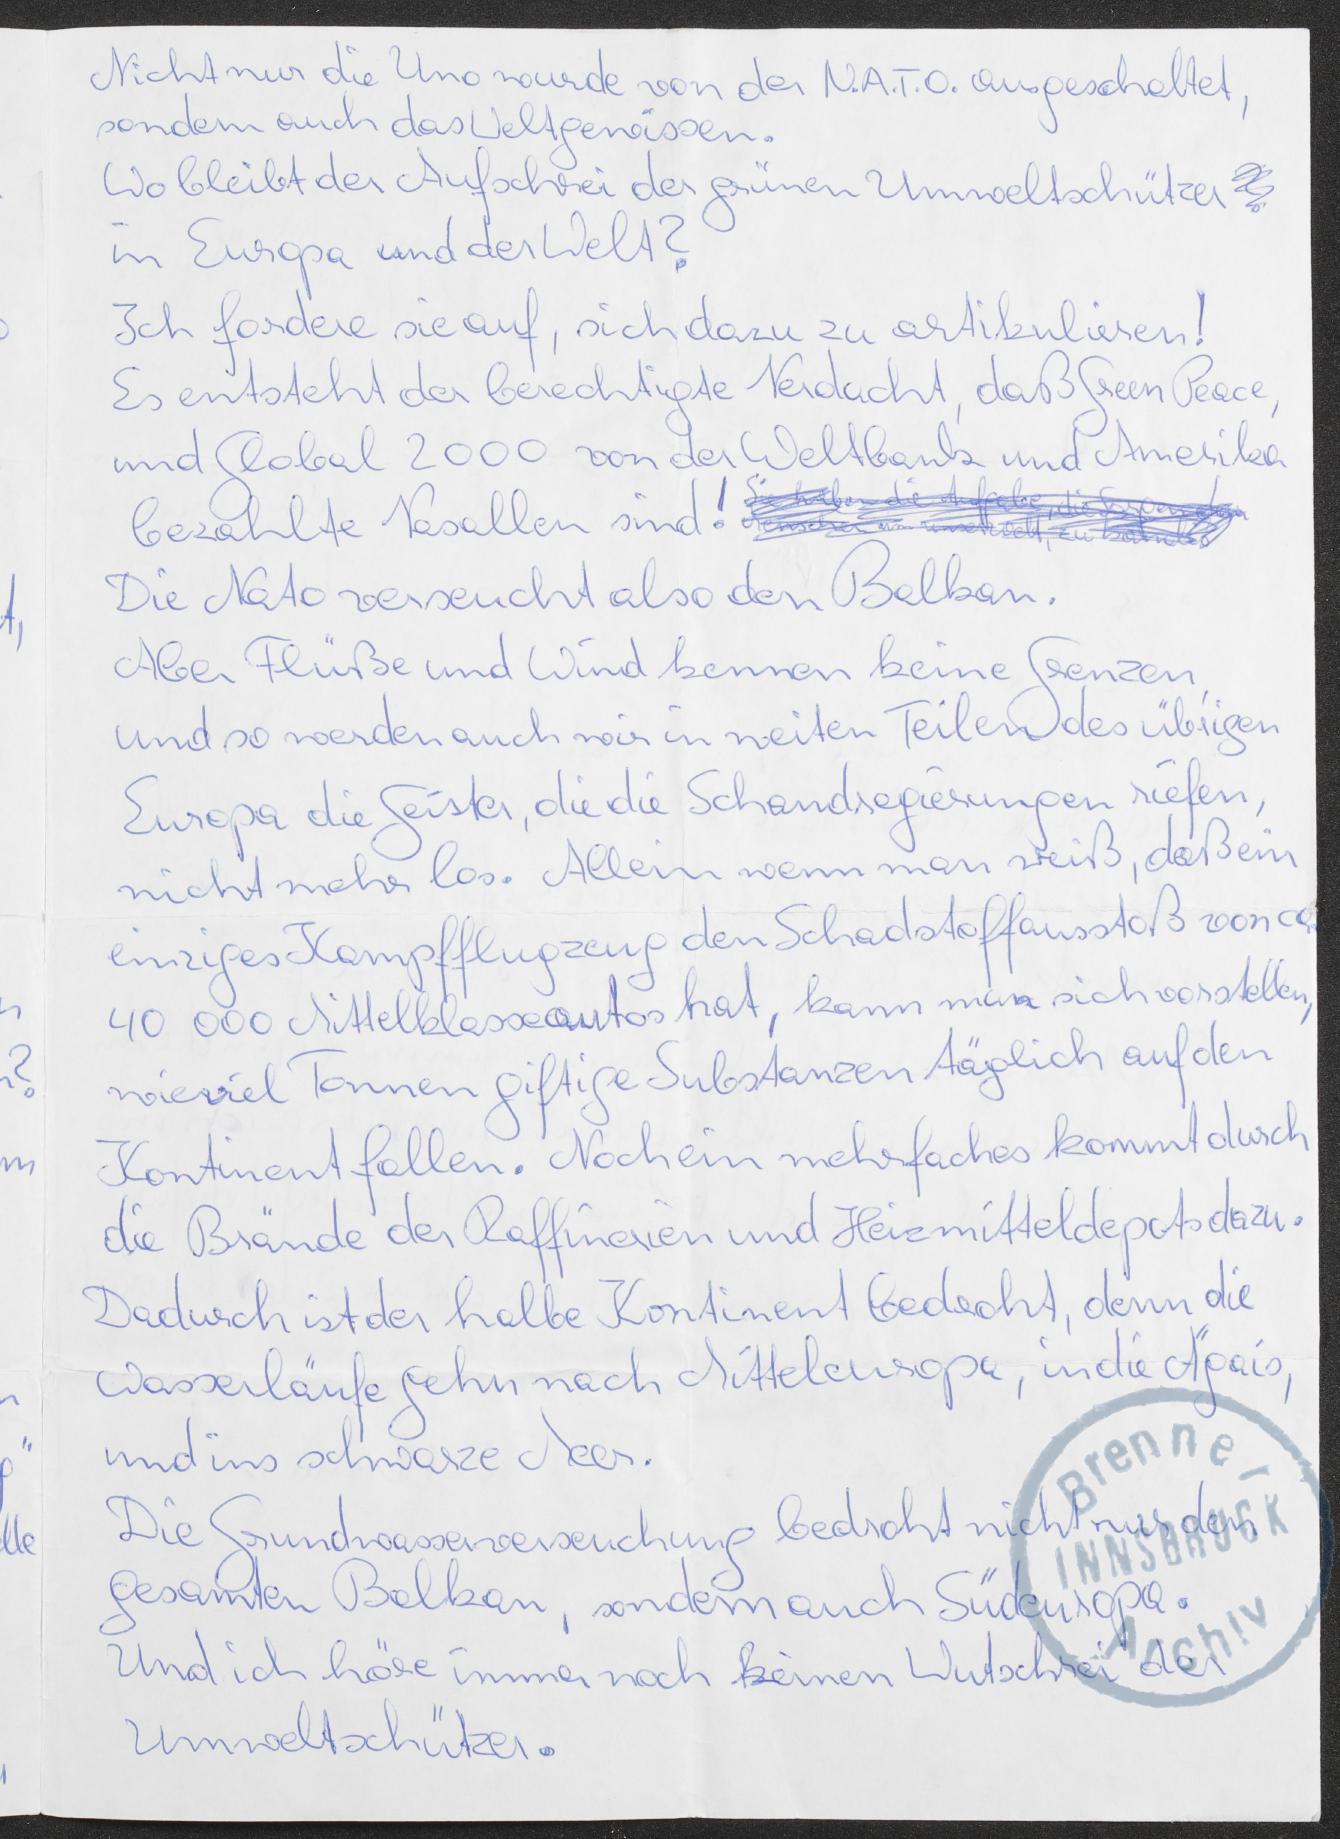 Nicht nur die Uno wurde von der N.A.T.O. ausgeschaltet,
sondern auch das Weltgewissen.
Wo bleibt der Aufschrei der grünen Umweltschützer
in Europa und der Welt?
Ich fordere sie auf, sich dazu zu artikulieren!
Es entsteht der berechtigte Verdacht, daß Green Peace,
und Global 2000 von der Weltbank und Amerika
bezahlte Vasallen sind! Sie haben die Aufgabe, die
Menschen
Die Nato verseucht also den Balkan.
Aber Flüße und Wind kennen keine Grenzen,
und so werden auch wir in weiten Teilen des übrigen
Europa die Geister, die die Schandregierungen riefen,
nicht mehr los. Allein wenn man weiß, daß ein
einziges Kampfflugzeug den Schadstoffausstoß von ca.
40 000 Mittelklasseautos hat, kann man sich vorstellen,
wieviel Tonnen giftige Substanzen täglich auf den
Kontinent fallen. Noch ein mehrfaches kommt durch
die Brände der Raffinerien und Heizmitteldepots dazu.
Dadurch ist der halbe Kontinent bedroht, denn die
Wasserläufe gehn nach Mitteleuropa, in die Ägäis,
und ins schwarze Meer.
Die Grundwasserverseuchung bedroht nicht nur den
gesamten Balkan, sondern auch Südeuropa.
Und ich höre immer noch keinen Wutschrei der
Umweltschützer.
Brenner-
INNSBRUCK
Archiv